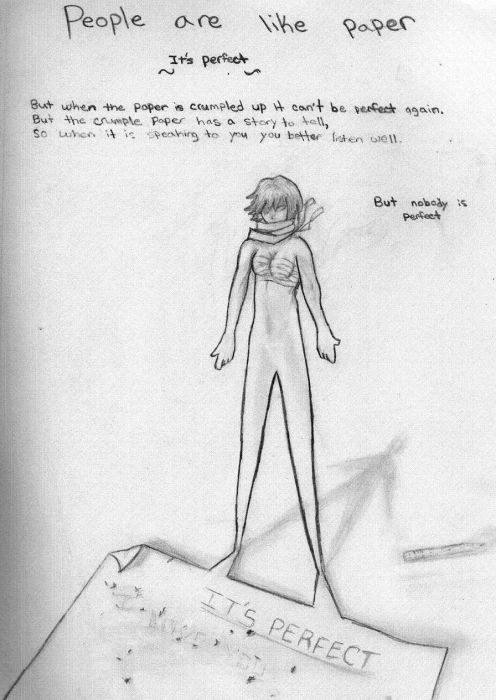 People are like paper
It's perfect
But when the paper is crumpled up it can't be perfect again.
But the crumple paper has a story to tell,
So when it is speaking to you you better listen well.
But nobody is
perfect
IT'S PERFECT